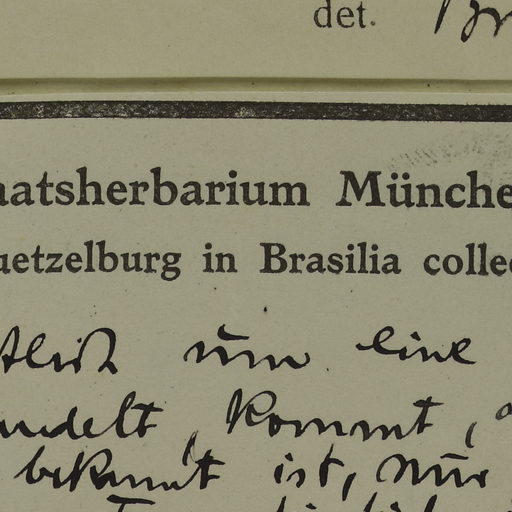 det. Br
aatsherbarium Münche
uetzelburg in Brasilia colle
tlich um eine
ndelt, kommt,
bekannt ist, nur